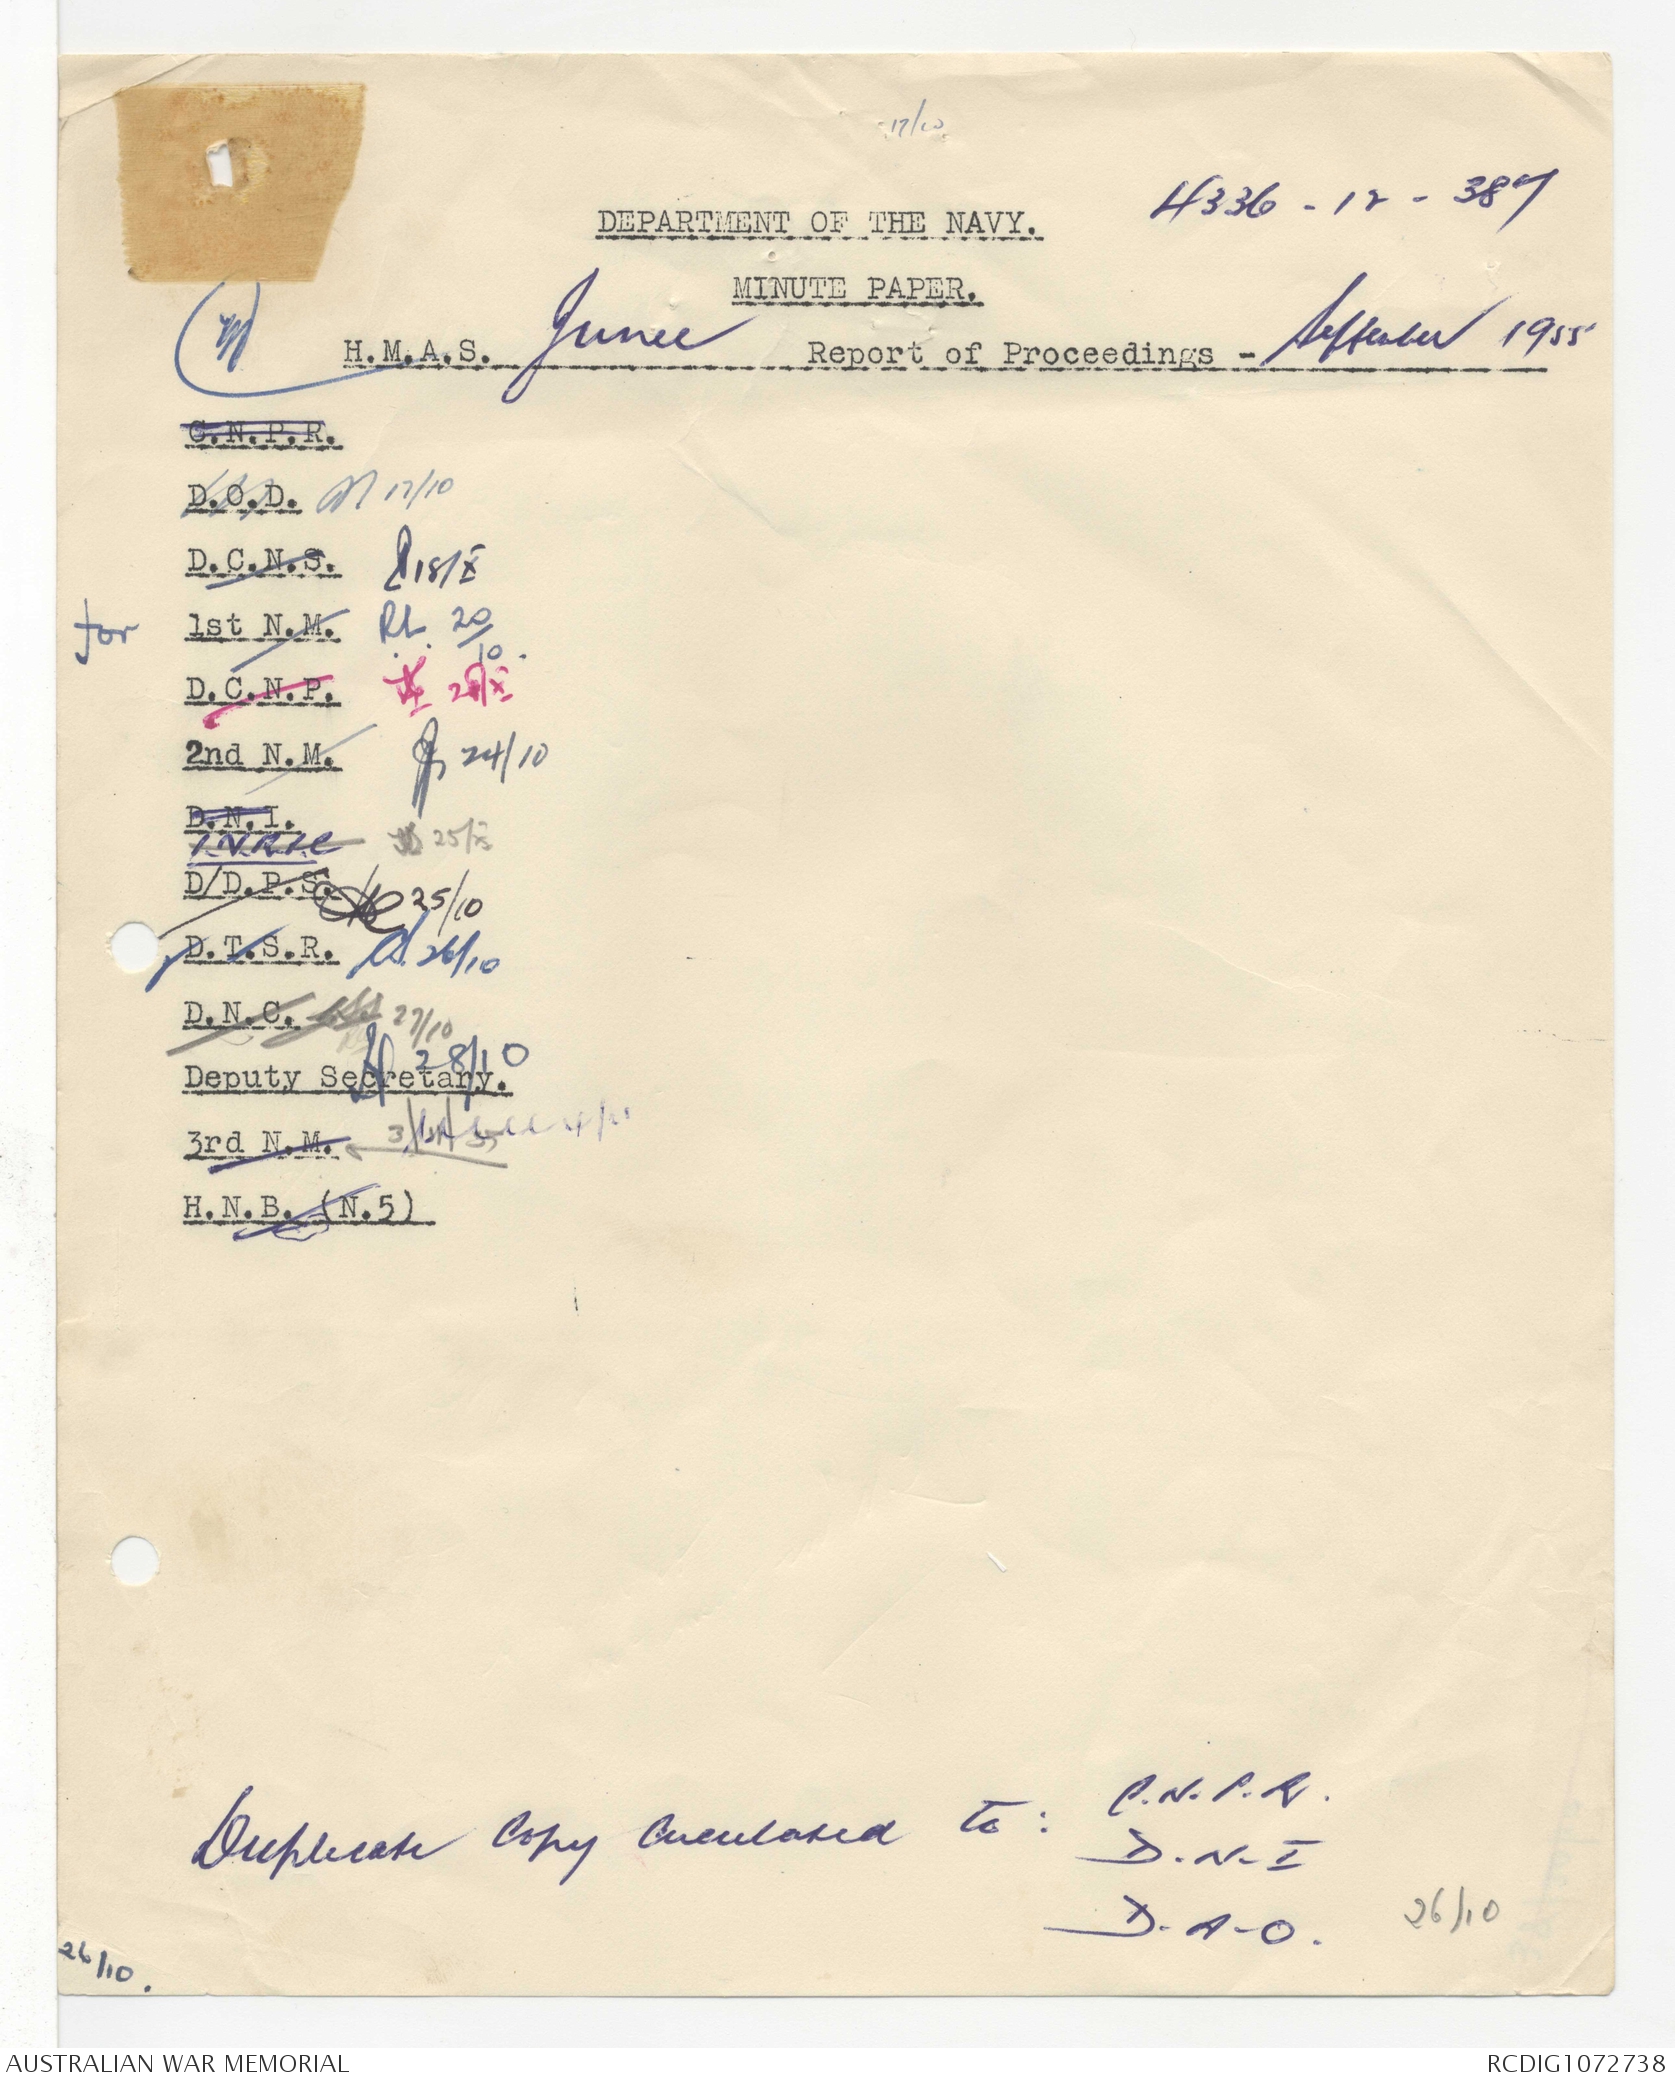 17/10
4336-12-387
DEPARTMENT OF THE NAVY.
MINUTE PAPER.
H.M.A.S. Junee Report of Proceedings - September 1955
C.N.P.R.
D.O.D. 17/10
D.C.N.S. 18/X
for 1st N.M. RL 20/10.
D.C.N.P. /X
2nd N.M. 24/10
D.N.I.
25/X
D/D.P.S. 25/10
D.T.S.R. 26/10
D.N.C. 27/10
Deputy Secretary. 28/10
3rd N.M.
H.N.B. (N.5)
Duplicate Copy Circulated to: C.N.P.R.
D.N.I
D.A.O.
26/10
26/10.
AUSTRALIAN WAR MEMORIAL
RCDIG1072738